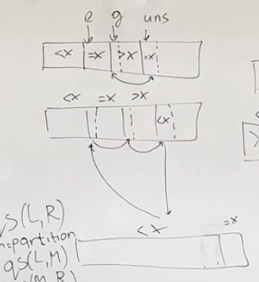 e g uns
<x =x >x =x
<x =x >x
<x
<x =x
qs(L,R)
m=partition
qs(L,M)
(M,R)